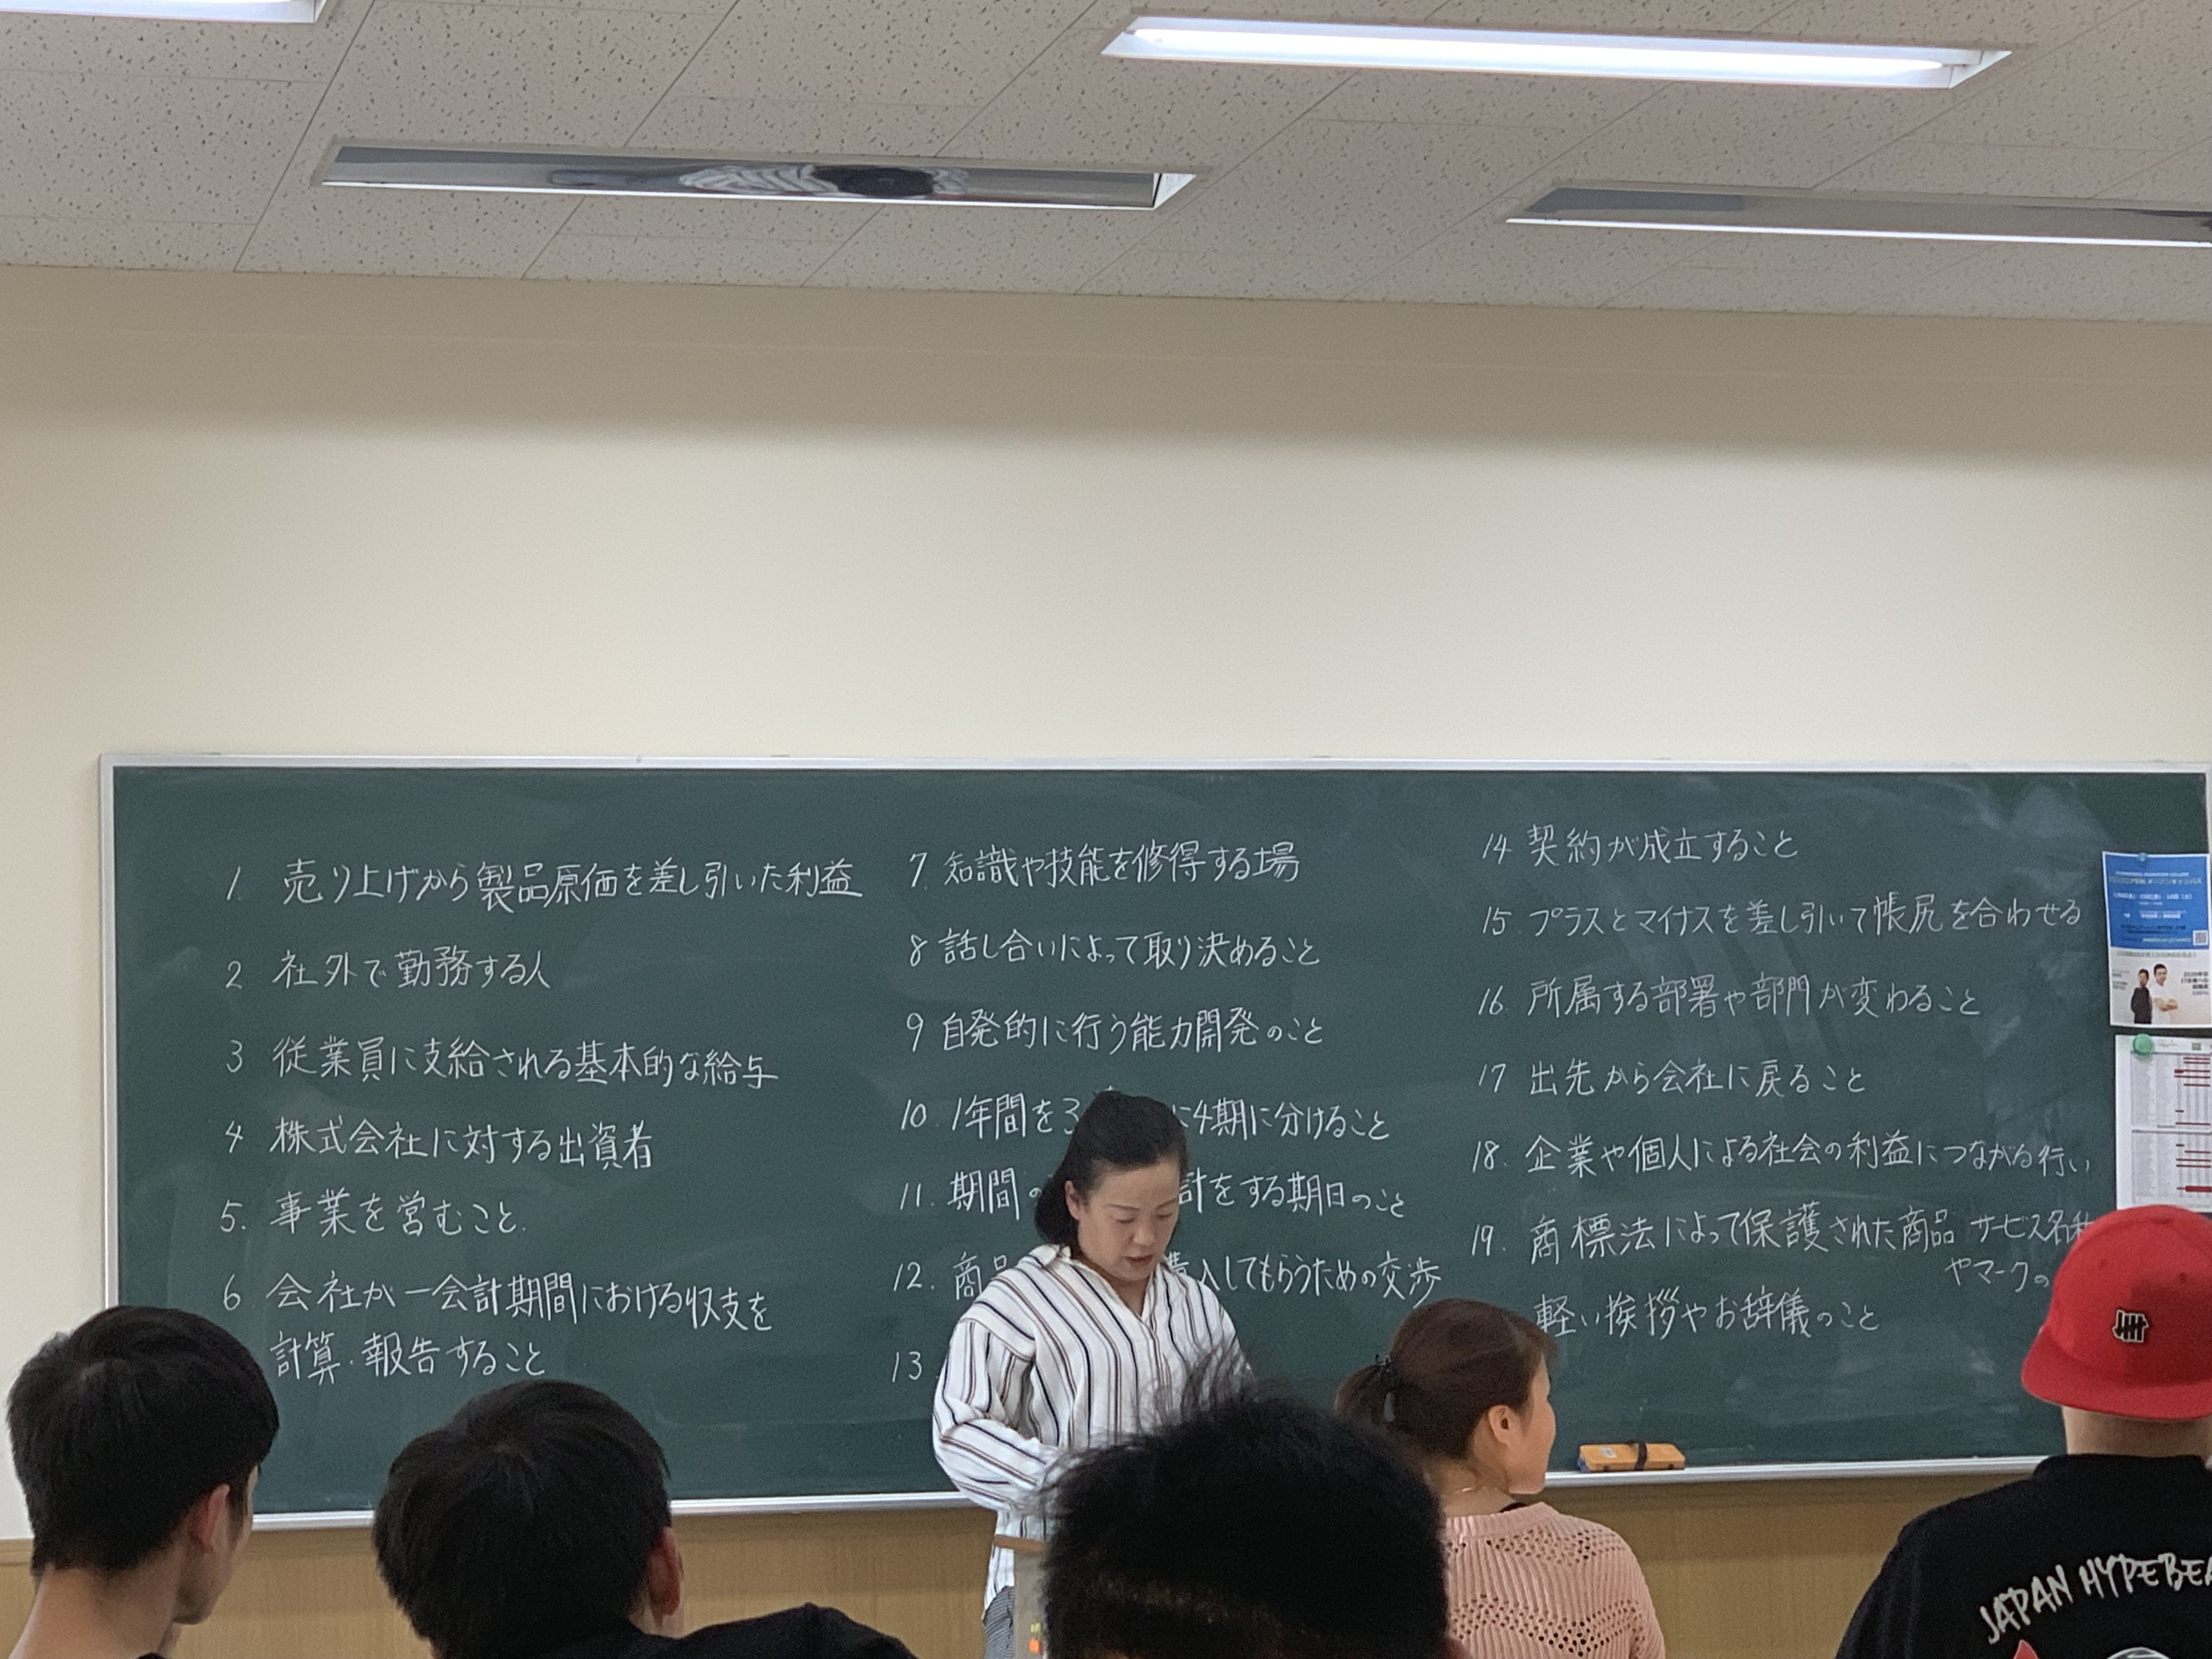 1. 売り上げから製品原価を差し引いた利益
2 社外で勤務する人
3 従業員に支給される基本的な給与
4 株式会社に対する出資者
5. 事業を営むこと.
6 会社が一会計期間における収支を
計算・報告すること
7. 知識や技能を修得する場
8 話し合いによって取り決めること
9 自発的に行う能力開発のこと
10. 1年間を3 に4期に分けること
11. 期間 計をする期日のこと
12. 商品 購入してもらうための交渉
13
14 契約が成立すること
15. プラスとマイナスを差し引いて帳尻を合わせる
16. 所属する部署や部門が変わること
17 出先から会社に戻ること
18. 企業や個人による社会の利益につながる行い
19. 商標法によって保護された商品 サービス名称
やマークの
軽い挨拶やお辞儀のこと
JAPAN HYPEBEA